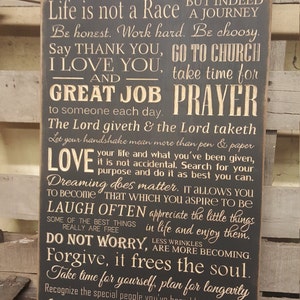 Life is not a Race BUT INDEED
A JOURNEY
Be honest. Work hard. Be choosy.
Say THANK YOU,
I LOVE YOU,
AND
GREAT JOB
to someone each day.
GO TO CHURCH
take time for
PRAYER
The Lord giveth & the Lord taketh
Let your handshake mean more than pen & paper
LOVE your life and what you've been given,
it is not accidental. Search for your
purpose and do it as best you can.
Dreaming does matter. IT ALLOWS YOU
TO BECOME THAT WHICH YOU ASPIRE TO BE
LAUGH OFTEN appreciate the little things
in life and enjoy them.
SOME OF THE BEST THINGS
REALLY ARE FREE
DO NOT WORRY, LESS WRINKLES
ARE MORE BECOMING
Forgive, it frees the soul.
Take time for yourself, plan for longevity
Recognize the special people you've